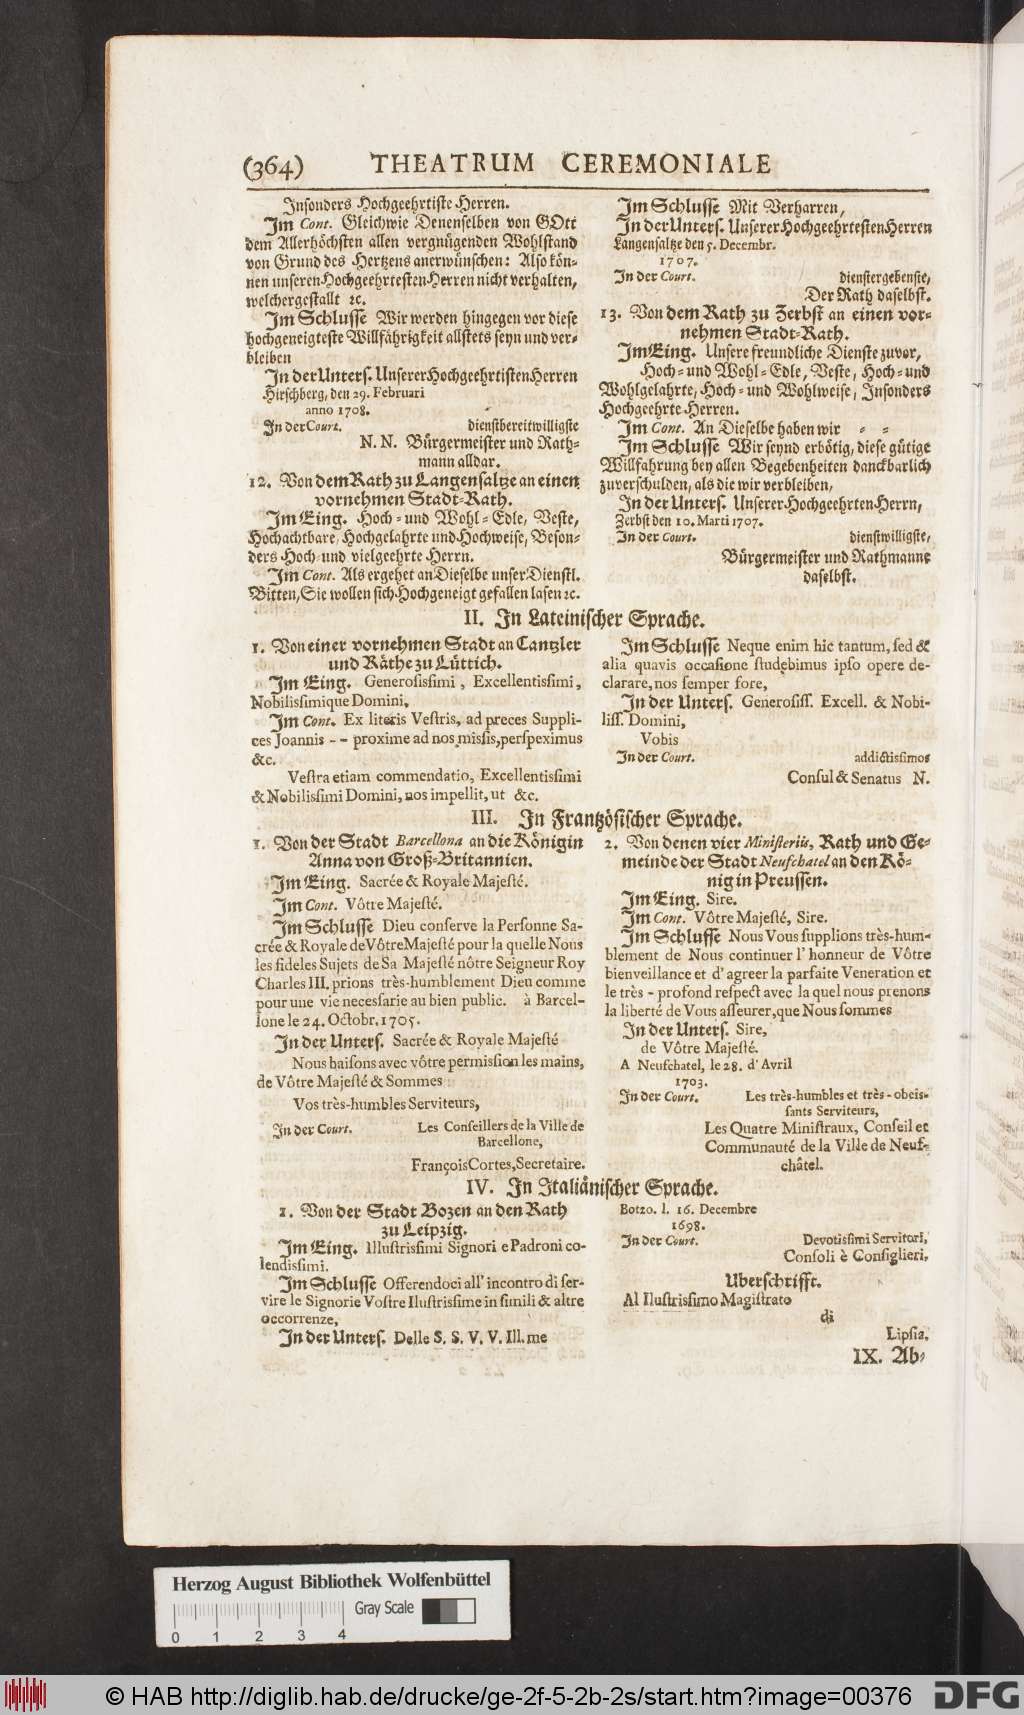 (364) THEATRUM CEREMONIALE
Insonders Hochgeehrtiste Herren.
Im Cont. Gleichwie Denenselben von GOtt
dem Allerhöchsten allen vergnügenden Wohlstand
von Grund des Hertzens anerwünschen: Also kön-
nen unseren Hochgeehrtesten Herren nicht verhalten,
welchergestallt ꝛc.
Im Schlusse Wir werden hingegen vor diese
hochgeneigteste Willfährigkeit allstets seyn und ver-
bleiben
In der Unters. Unserer Hochgeehrtisten Herren
Hirschberg, den 29. Februari
anno 1708.
In der Court. dienstbereitwilligste
N. N. Bürgermeister und Rath-
mann alldar.
12. Von dem Rath zu Langensaltze an einen
vornehmen Stadt-Rath.
Im Eing. Hoch- und Wohl-Edle, Veste,
Hochachtbare, Hochgelahrte und Hochweise, Beson-
ders Hoch- und vielgeehrte Herrn.
Im Cont. Als ergehet an Dieselbe unser Dienstl.
Bitten, Sie wollen sich Hochgeneigt gefallen lasen ꝛc.
Im Schlusse Mit Verharren,
In der Unters. Unserer Hochgeehrtesten Herren
Langensaltze den 5. Decembr.
1707.
In der Court. dienstergebenste,
Der Rath daselbst.
13. Von dem Rath zu Zerbst an einen vor-
nehmen Stadt-Rath.
Im Eing. Unsere freundliche Dienste zuvor,
Hoch- und Wohl-Edle, Veste, Hoch- und
Wohlgelahrte, Hoch- und Wohlweise, Insonders
Hochgeehrte Herren.
Im Cont. An Dieselbe haben wir - -
Im Schlusse Wir seynd erbötig, diese gütige
Willfahrung bey allen Begebenheiten danckbarlich
zuverschulden, als die wir verbleiben,
In der Unters. Unserer Hochgeehrten Herrn,
Zerbst den 10. Marti 1707.
In der Court. dienstwilligste,
Bürgermeister und Rathmanne
daselbst.
II. In Lateinischer Sprache.
1. Von einer vornehmen Stadt an Cantzler
und Räthe zu Lüttich.
Im Eing. Generosissimi, Excellentissimi,
Nobilissimique Domini,
Im Cont. Ex literis Vestris, ad preces Suppli-
ces Joannis - - proxime ad nos missis, perspeximus
&c.
Vestra etiam commendatio, Excellentissimi
& Nobilissimi Domini, nos impellit, ut &c.
Im Schlusse Neque enim hic tantum, sed &
alia quavis occasione studebimus ipso opere de-
clarare, nos semper fore,
In der Unters. Generosiss. Excell. & Nobi-
liss. Domini,
Vobis
In der Court. addictissimos
Consul & Senatus N.
III. In Frantzösischer Sprache.
1. Von der Stadt Barcellona an die Königin
Anna von Groß-Britannien.
Im Eing. Sacrée & Royale Majesté.
Im Cont. Vôtre Majesté.
Im Schlusse Dieu conserve la Personne Sa-
crée & Royale de Vôtre Majesté pour la quelle Nous
les fideles Sujets de Sa Majesté nôtre Seigneur Roy
Charles III. prions très-humblement Dieu comme
pour une vie necessarie au bien public. à Barcel-
lone le 24. Octobr. 1705.
In der Unters. Sacrée & Royale Majesté
Nous baisons avec vôtre permission les mains,
de Vôtre Majesté & Sommes
Vos très-humbles Serviteurs,
In der Court. Les Conseillers de la Ville de
Barcellone,
François Cortes, Secretaire.
2. Von denen vier Ministeriis, Rath und Ge-
meinde der Stadt Neufchatel an den Kö-
nig in Preussen.
Im Eing. Sire.
Im Cont. Vôtre Majesté, Sire.
Im Schlusse Nous Vous supplions très-hum-
blement de Nous continuer l'honneur de Vôtre
bienveillance et d'agreer la parfaite Veneration et
le très-profond respect avec la quel nous prenons
la liberté de Vous asseurer, que Nous sommes
In der Unters. Sire,
de Vôtre Majesté.
A Neufchatel, le 28. d'Avril
1703.
In der Court. Les très-humbles et très-obeis-
sants Serviteurs,
Les Quatre Ministraux, Conseil et
Communauté de la Ville de Neuf-
châtel.
IV. In Italiänischer Sprache.
1. Von der Stadt Bozen an den Rath
zu Leipzig.
Im Eing. Illustrissimi Signori e Padroni co-
lendissimi.
Im Schlusse Offerendoci all'incontro di ser-
vire le Signorie Vostre Ilustrissime in simili & altre
occorrenze,
In der Unters. Delle S. S. V. V. Ill. me
Botzo. l. 16. Decembre
1698.
In der Court. Devotissimi Servitori,
Consoli è Consiglieri.
Uberschrifft.
Al Ilustrissimo Magistrato
di
Lipsia.
IX. Ab-
Herzog August Bibliothek Wolfenbüttel
Gray Scale
0 1 2 3 4
© HAB http://diglib.hab.de/drucke/ge-2f-5-2b-2s/start.htm?image=00376 DFG